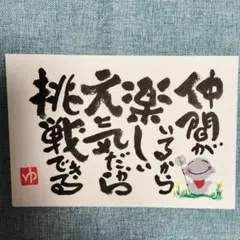 仲間が
いるから
楽しい
元気だから
挑戦できる
ゆ